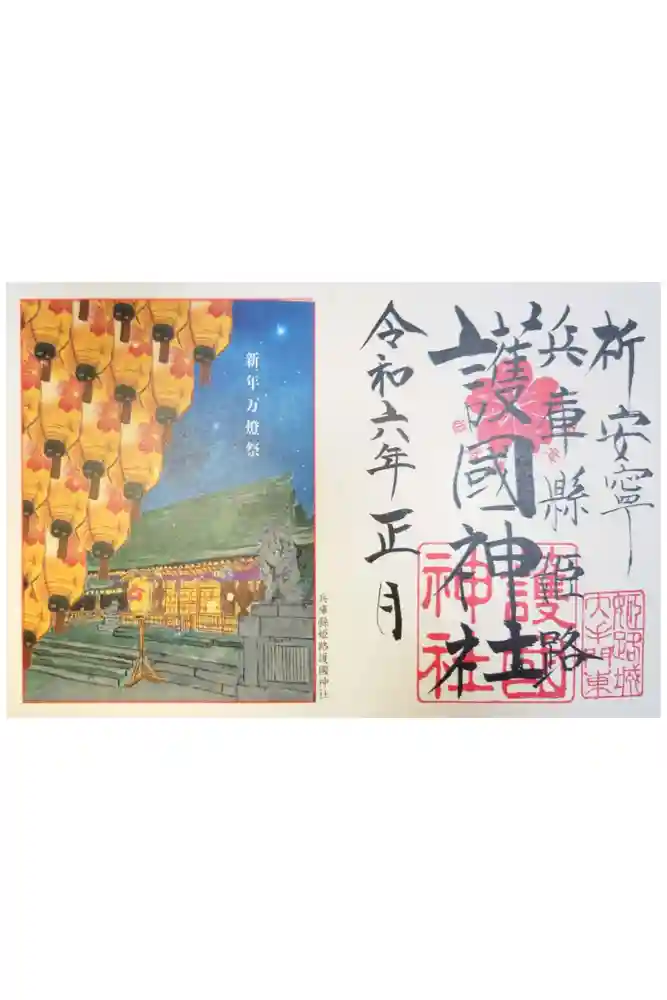 祈安寧
兵庫縣姫路
護國神社
令和六年正月
護国
神社
姫路城
大手門東
新年万燈祭
兵庫縣姫路護國神社